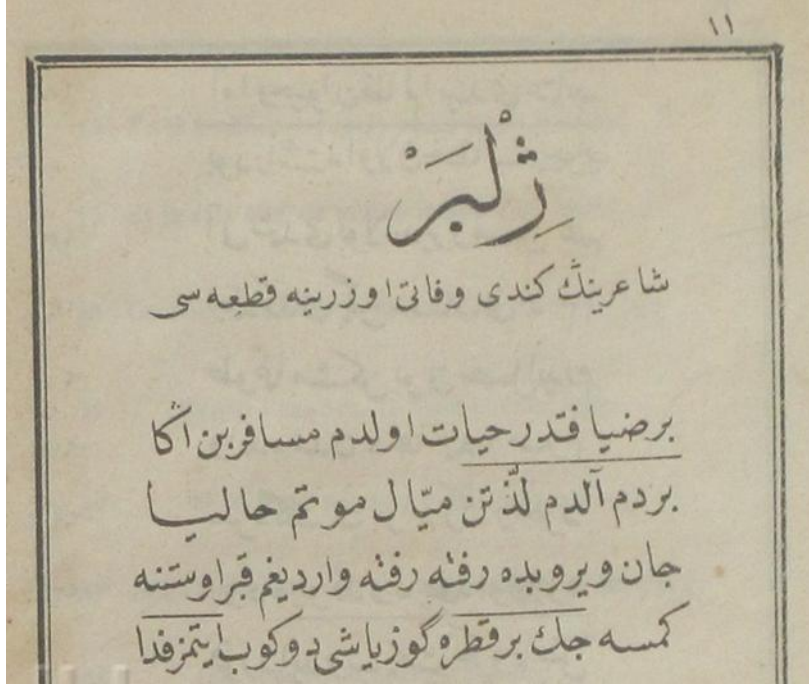 ١١
ژِلْبَرْ
شاعرينڭ كندى وفاتى اوزرينه قطعه سى
برضيافتدر حيات اولدم مسافر بن اڭا
بردم آلدم لذّتن ميّال موتم حاليا
جان ويروبده رفته رفته وارديغم قبر اوستنه
كمسه جك بر قطره گوز ياشى دوكوب ايتمز فدا